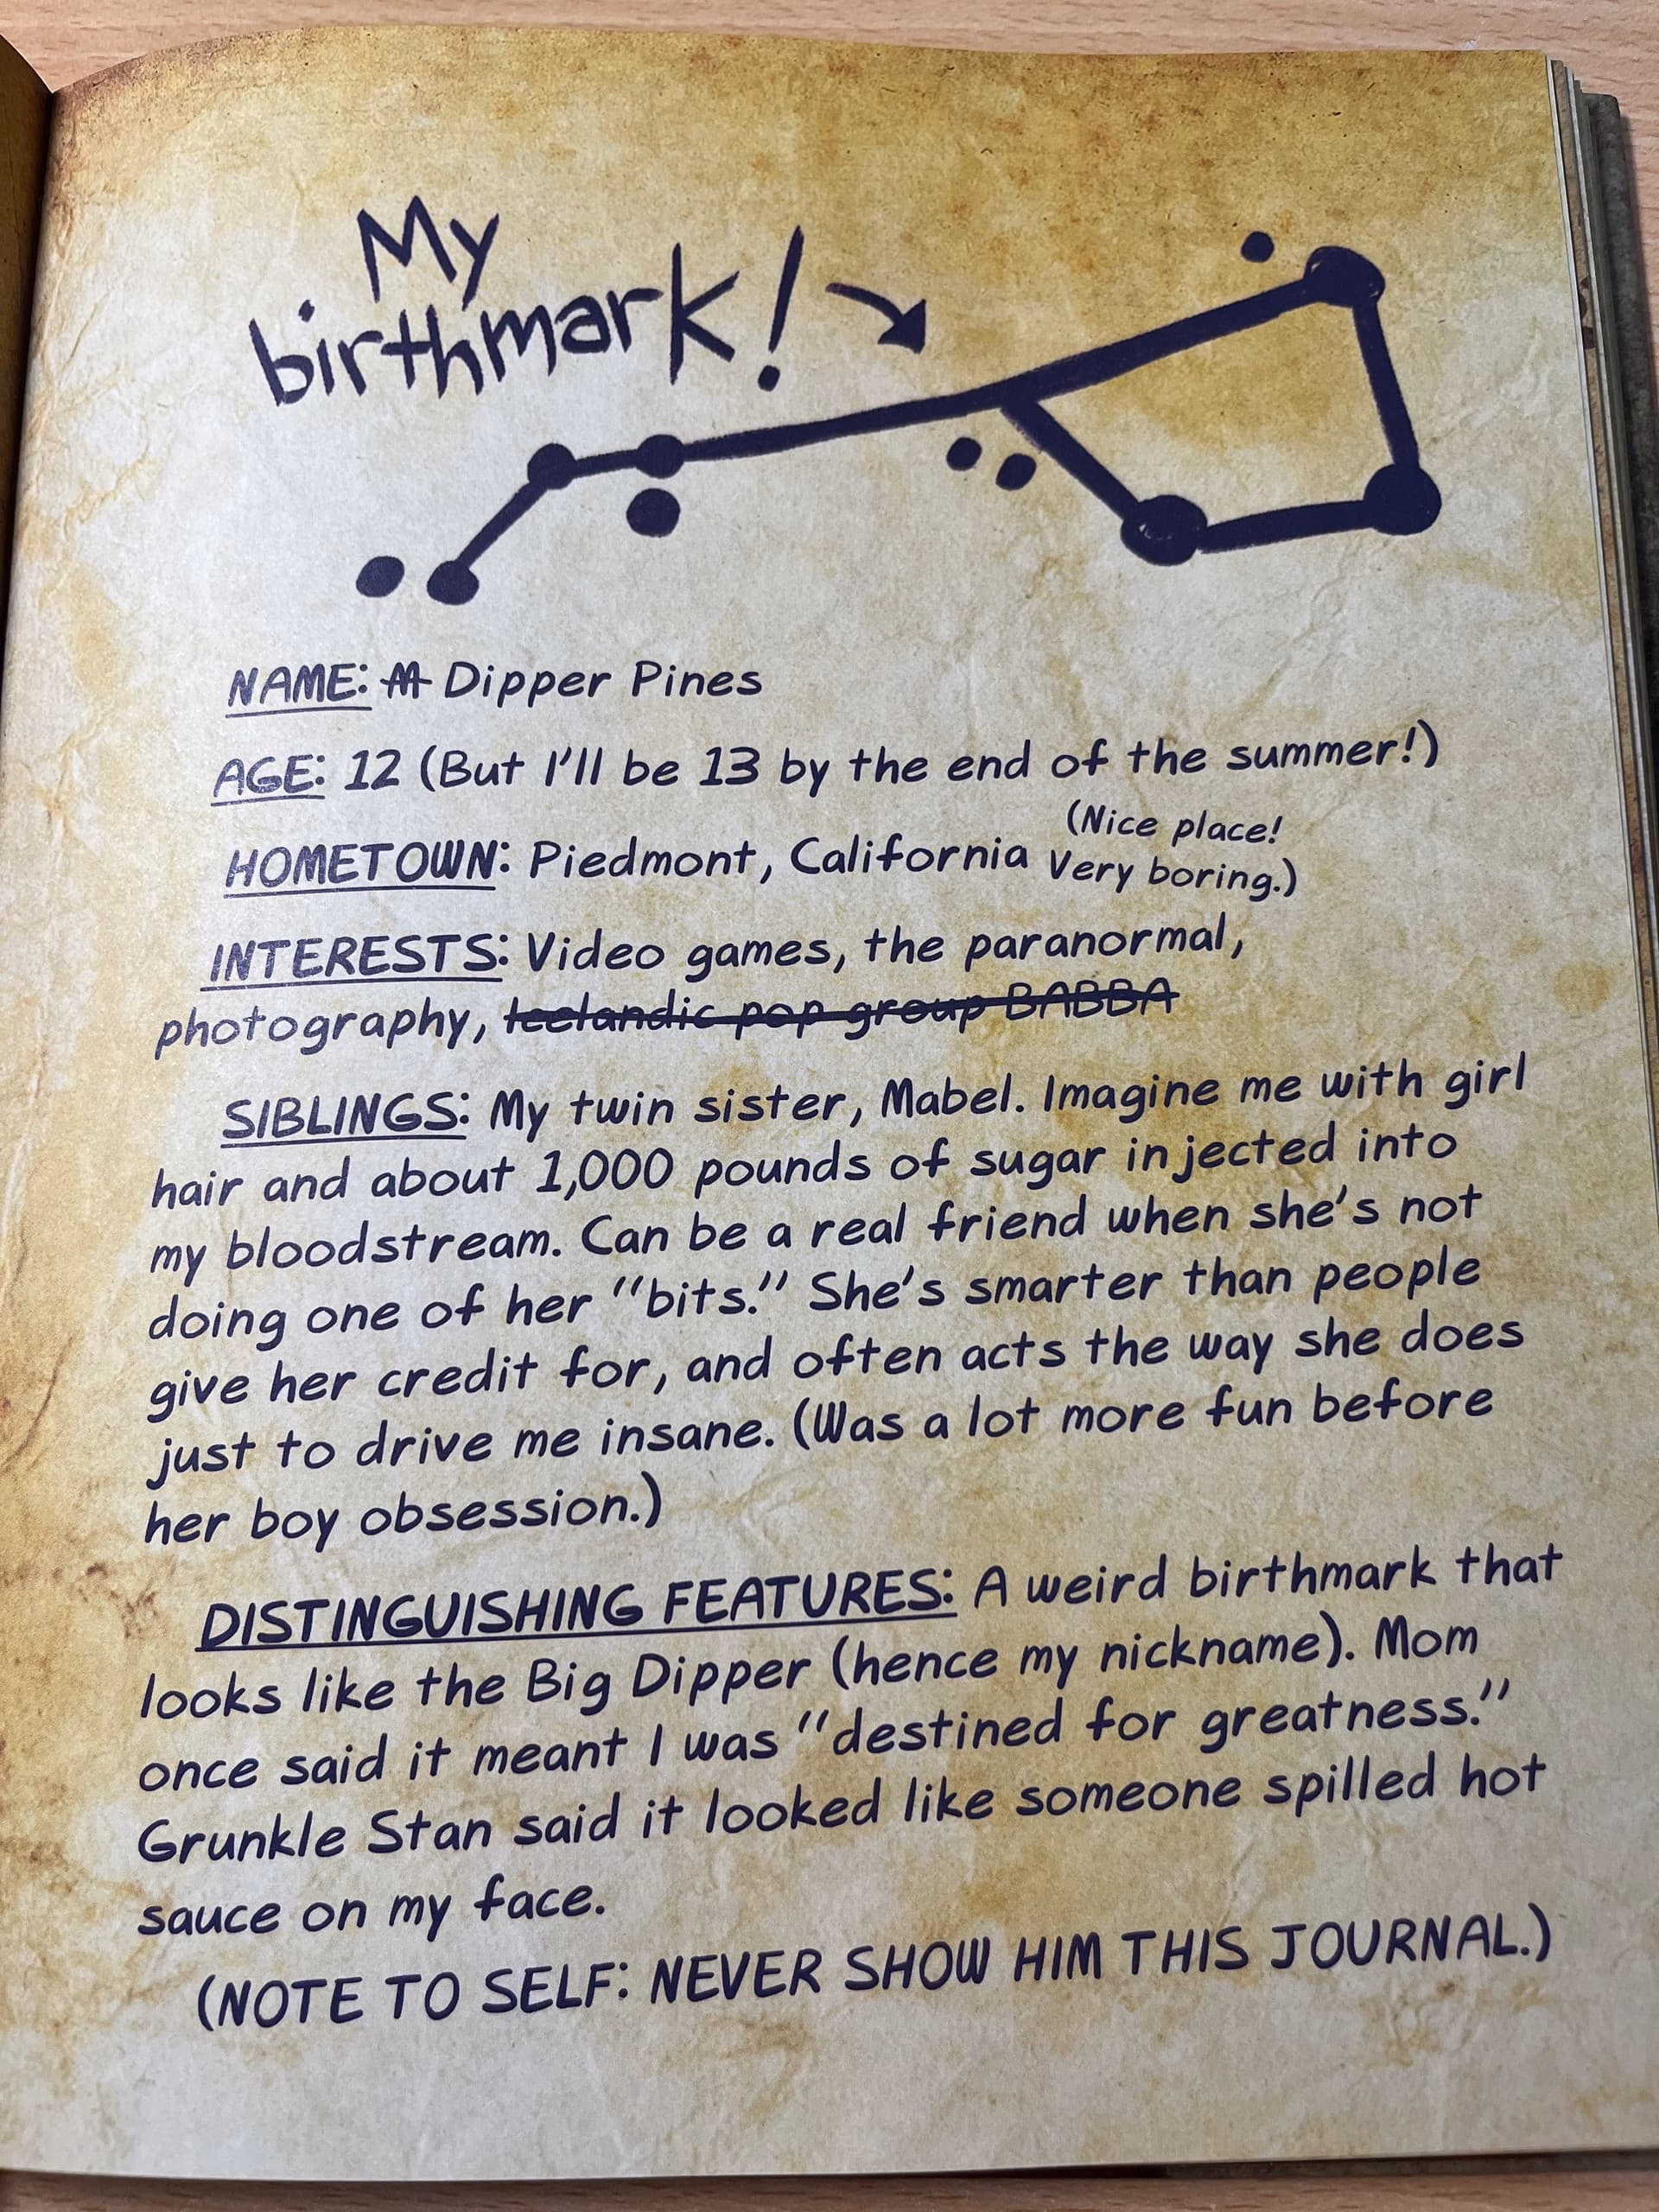 My
birthmark!
NAME: M Dipper Pines
AGE: 12 (But I'll be 13 by the end of the summer!)
HOMETOWN: Piedmont, California (Nice place!
Very boring.)
INTERESTS: Video games, the paranormal,
photography, Icelandic pop group BABBA
SIBLINGS: My twin sister, Mabel. Imagine me with girl
hair and about 1,000 pounds of sugar injected into
my bloodstream. Can be a real friend when she's not
doing one of her "bits." She's smarter than people
give her credit for, and often acts the way she does
just to drive me insane. (Was a lot more fun before
her boy obsession.)
DISTINGUISHING FEATURES: A weird birthmark that
looks like the Big Dipper (hence my nickname). Mom
once said it meant I was "destined for greatness."
Grunkle Stan said it looked like someone spilled hot
sauce on my face.
(NOTE TO SELF: NEVER SHOW HIM THIS JOURNAL.)